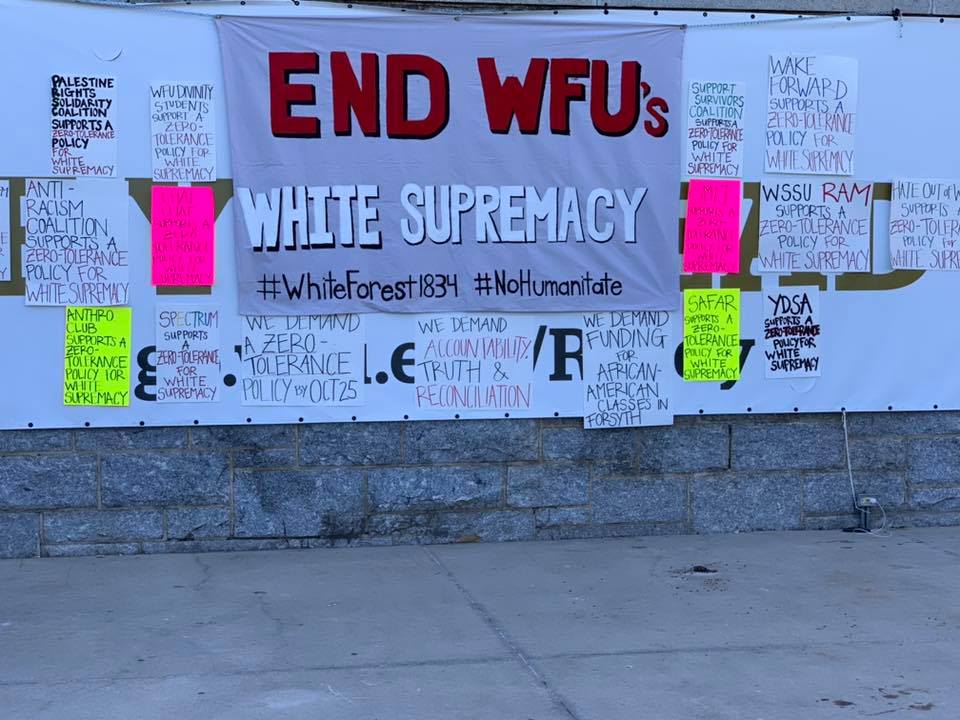 END WFU's
WHITE SUPREMACY
#WhiteForest1834 #NoHumanitate
PALESTINE
RIGHTS
SOLIDARITY
COALITION
SUPPORTS A
ZERO-TOLERANCE
POLICY
FOR
WHITE
SUPREMACY
WFU DIVINITY
STUDENTS
SUPPORT A
ZERO-
TOLERANCE
POLICY FOR
WHITE
SUPREMACY
ANTI-
RACISM
COALITION
SUPPORTS A
ZERO-TOLERANCE
POLICY FOR
WHITE SUPREMACY
SUPPORTS A
ZERO-
TOLERANCE
POLICY
FOR WHITE
SUPREMACY
ANTHRO
CLUB
SUPPORTS A
ZERO-
TOLERANCE
POLICY FOR
WHITE
SUPREMACY
SPECTRUM
SUPPORTS
A
ZERO-TOLERANCE
POLICY
FOR
WHITE
SUPREMACY
WE DEMAND
A ZERO-
TOLERANCE
POLICY BY OCT 25
WE DEMAND
ACCOUNTABILITY,
TRUTH &
RECONCILIATION
WE DEMAND
FUNDING
FOR
AFRICAN-
AMERICAN
CLASSES IN
FORSYTH
SUPPORT
SURVIVORS
COALITION
SUPPORTS A
ZERO-TOLERANCE
POLICY FOR
WHITE
SUPREMACY
WAKE
FORWARD
SUPPORTS A
ZERO-TOLERANCE
POLICY FOR
WHITE SUPREMACY
SUPPORTS A
ZERO-
TOLERANCE
POLICY FOR
WHITE
SUPREMACY
WSSU RAM
SUPPORTS A
ZERO-TOLERANCE
POLICY FOR
WHITE SUPREMACY
HATE OUT OF
SUPPORTS A
POLICY FOR
WHITE SUPREM
SAFAR
SUPPORTS A
ZERO-
TOLERANCE
POLICY FOR
WHITE
SUPREMACY
YDSA
SUPPORTS A
ZERO-TOLERANCE
POLICY FOR
WHITE
SUPREMACY